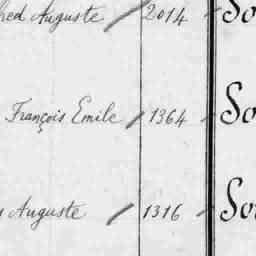 Auguste / 2014 So
François Emile / 1364 So
Auguste / 1316 Sou